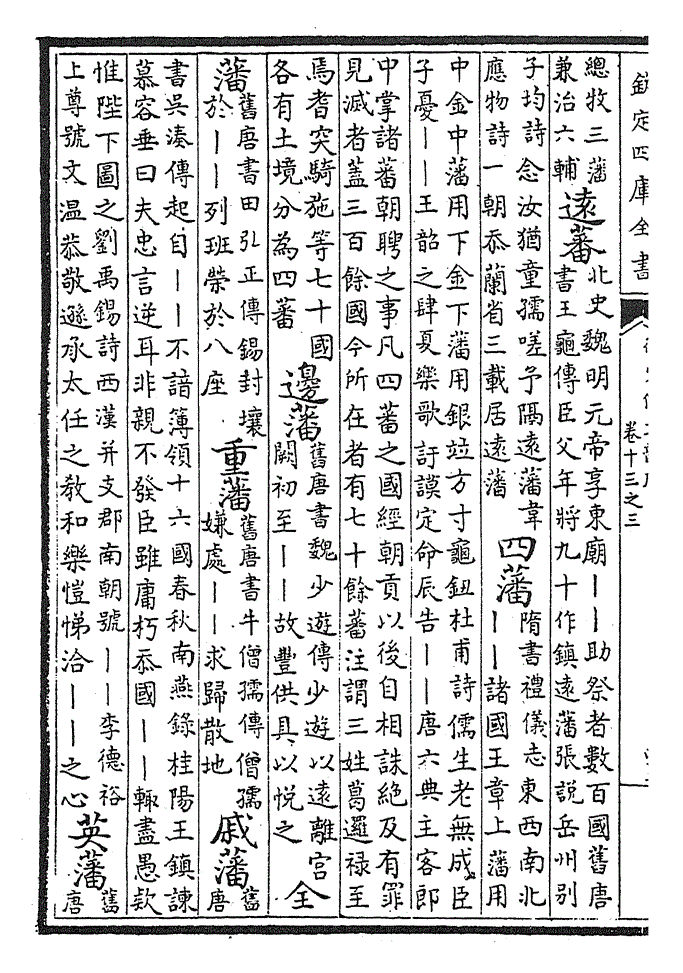 欽定四庫全書
卷十三之三
總牧三藩
兼治六輔
遠蕃
北史魏明元帝享東廟——助祭者數百國舊唐
書王龜傳臣父年將九十作鎮遠藩張説岳州别
子均詩念汝猶童孺嗟予隔遠藩韋
應物詩一朝忝蘭省三載居遠藩
四藩
隋書禮儀志東西南北
——諸國王章上藩用
中金中藩用下金下藩用銀竝方寸龜鈕杜甫詩儒生老無成臣
子憂——王韶之肆夏樂歌訏謨定命辰告——唐六典主客郎
中掌諸蕃朝聘之事凡四蕃之國經朝貢以後自相誅絶及有罪
見滅者蓋三百餘國今所在者有七十餘蕃注謂三姓葛邏祿至
焉耆突騎施等七十國
各有土境分為四蕃
邊藩
舊唐書魏少遊傳少遊以遠離宮
闕初至——故豐供具以悦之
全
藩
舊唐書田弘正傳錫封壤
於——列班榮於八座
重藩
舊唐書牛僧孺傳僧孺
嫌處——求歸散地
戚藩
舊
唐
書吳湊傳起自——不諳簿領十六國春秋南燕錄桂陽王鎮諫
慕容垂曰夫忠言逆耳非親不發臣雖庸朽忝國——輒盡愚款
惟陛下圖之劉禹錫詩西漢并支郡南朝號——李德裕
上尊號文温恭敬遜承太任之教和樂愷悌洽——之心
英藩
舊
唐